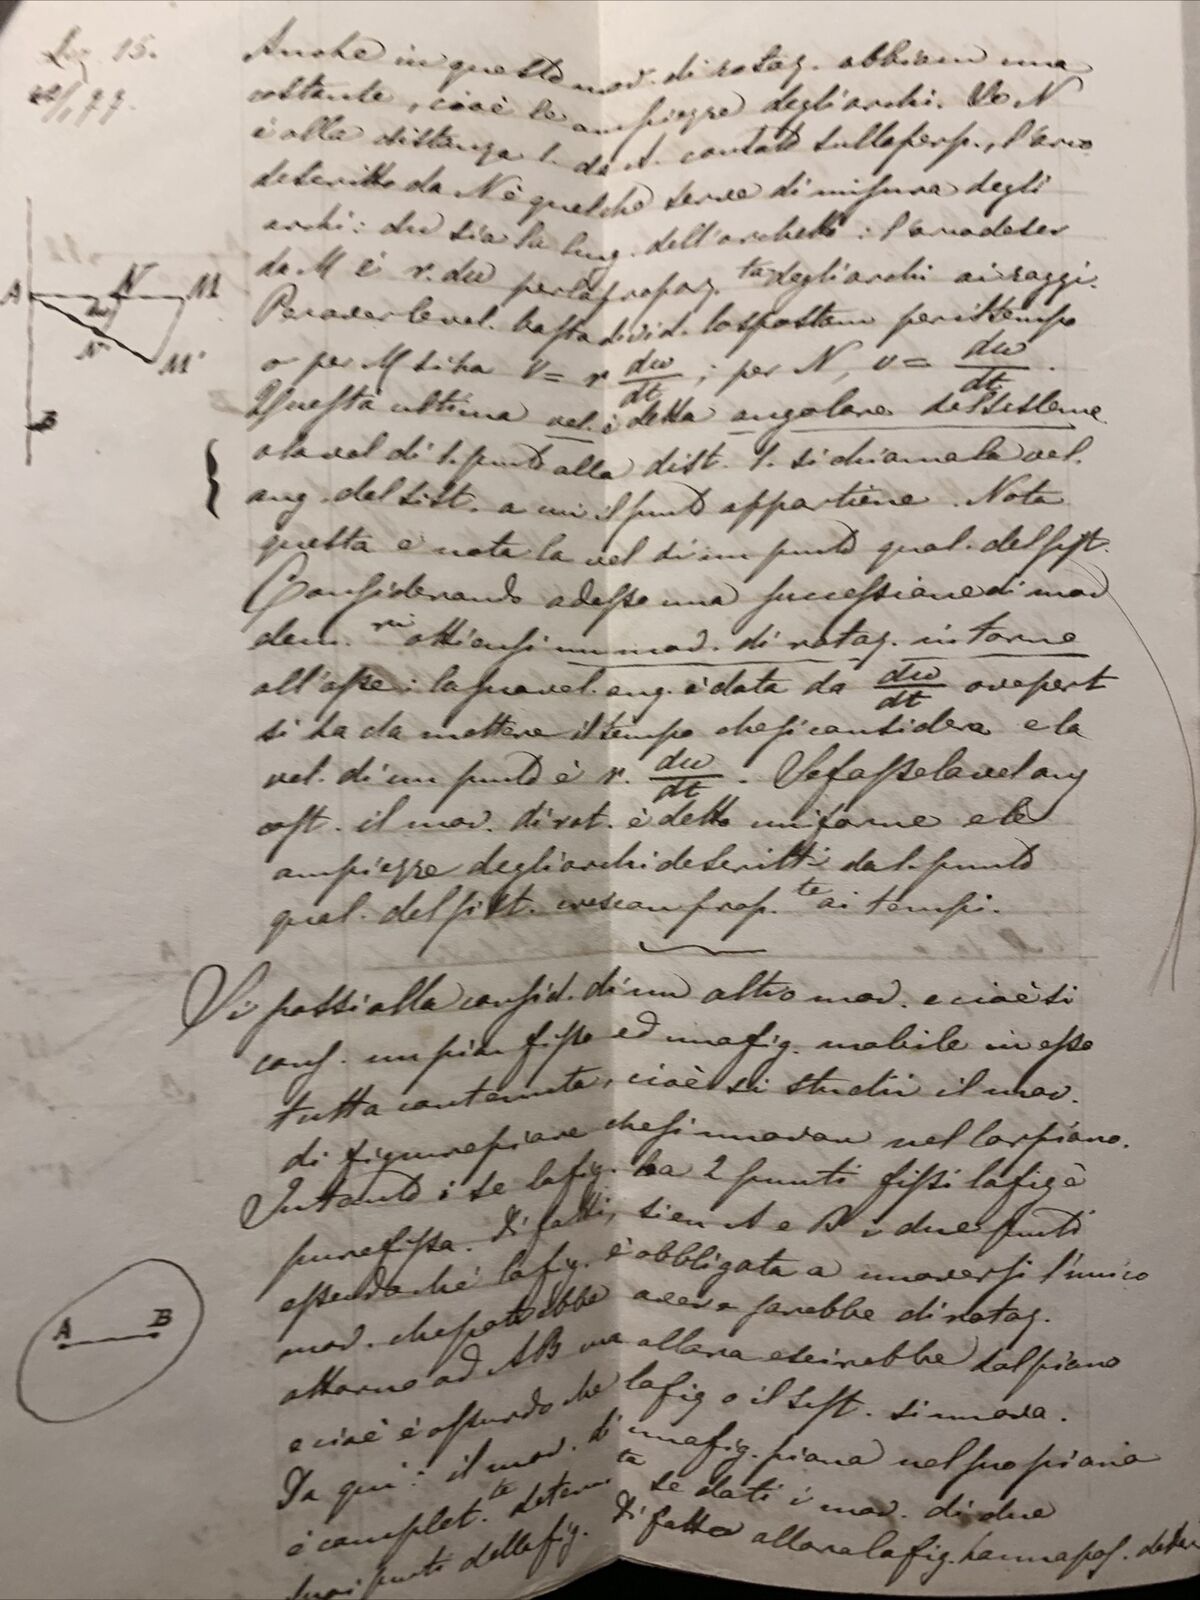 Lez. 15.
Anche in questo mov. di rotaz. abbiam una
costante, cioè le ampiezze degli archi. Se N
è alla distanza 1. da A. contata sulla perp., l'arco
descritto da N è quel che serve di misura degli
archi: dω sia la lung. dell'archetto: l'arco descr
da M è r. dω per la propoz.ta degli archi ai raggi.
Per aver le vel. basta divid. lo spostam per il tempo
o per M si ha V = r dω/dt ; per N, v = dω/dt.
Questa ultima vel. è detta angolare del sistema
o la vel di 1. punto alla dist. 1. si chiama la vel.
ang. del sist. a cui il punto appartiene. Nota
questa è nota la vel di un punto qual. del sist.
Considerando adesso una successione di mov
elem.ri ottiensi un mov. di rotaz. intorno
all'asse: la sua vel. ang. è data da dω/dt ove per t
si ha da mettere il tempo che si considera e la
vel. di un punto è r. dω/dt. Se fosse la vel ang
cost. il mov. di rot. è detto uniforme e le
ampiezze degli archi descritti da 1. punto
qual. del sist. crescon prop.te ai tempi.
Si passi alla consid. di un altro mov. e cioè si
cons. un pian fisso ed una fig. mobile in esso
tutta contenuta, cioè si studii il mov.
di figure piane che si muovan nel lor piano.
Intanto: se la fig. ha 2 punti fissi la fig è
pure fissa. Di fatti, sien A e B i due punti
essendo che la fig. è obbligata a muoversi l'unico
mov. che potrebbe avere sarebbe di rotaz.
attorno ad AB ma allora escirebbe dal piano
e cioè è assurdo che la fig o il sist. si mova.
Da qui: il mov. di una fig. piana nel suo piano
è complet.te determ.ta se dati i mov. di due
suoi punti della fig. Di fatto allora la fig. ha una pos.
A N M
dω
N' M'
B
A B